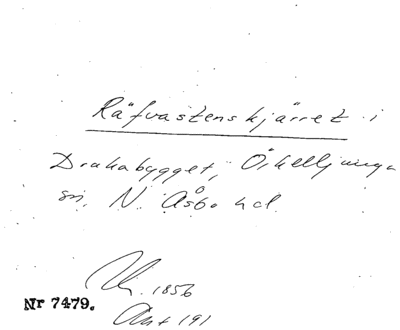 Räfvastenskjärret i
Drakabygget, Örkelljunga
sn, N. Åsbo hd.
1856
Nr 7479.
Akt 191